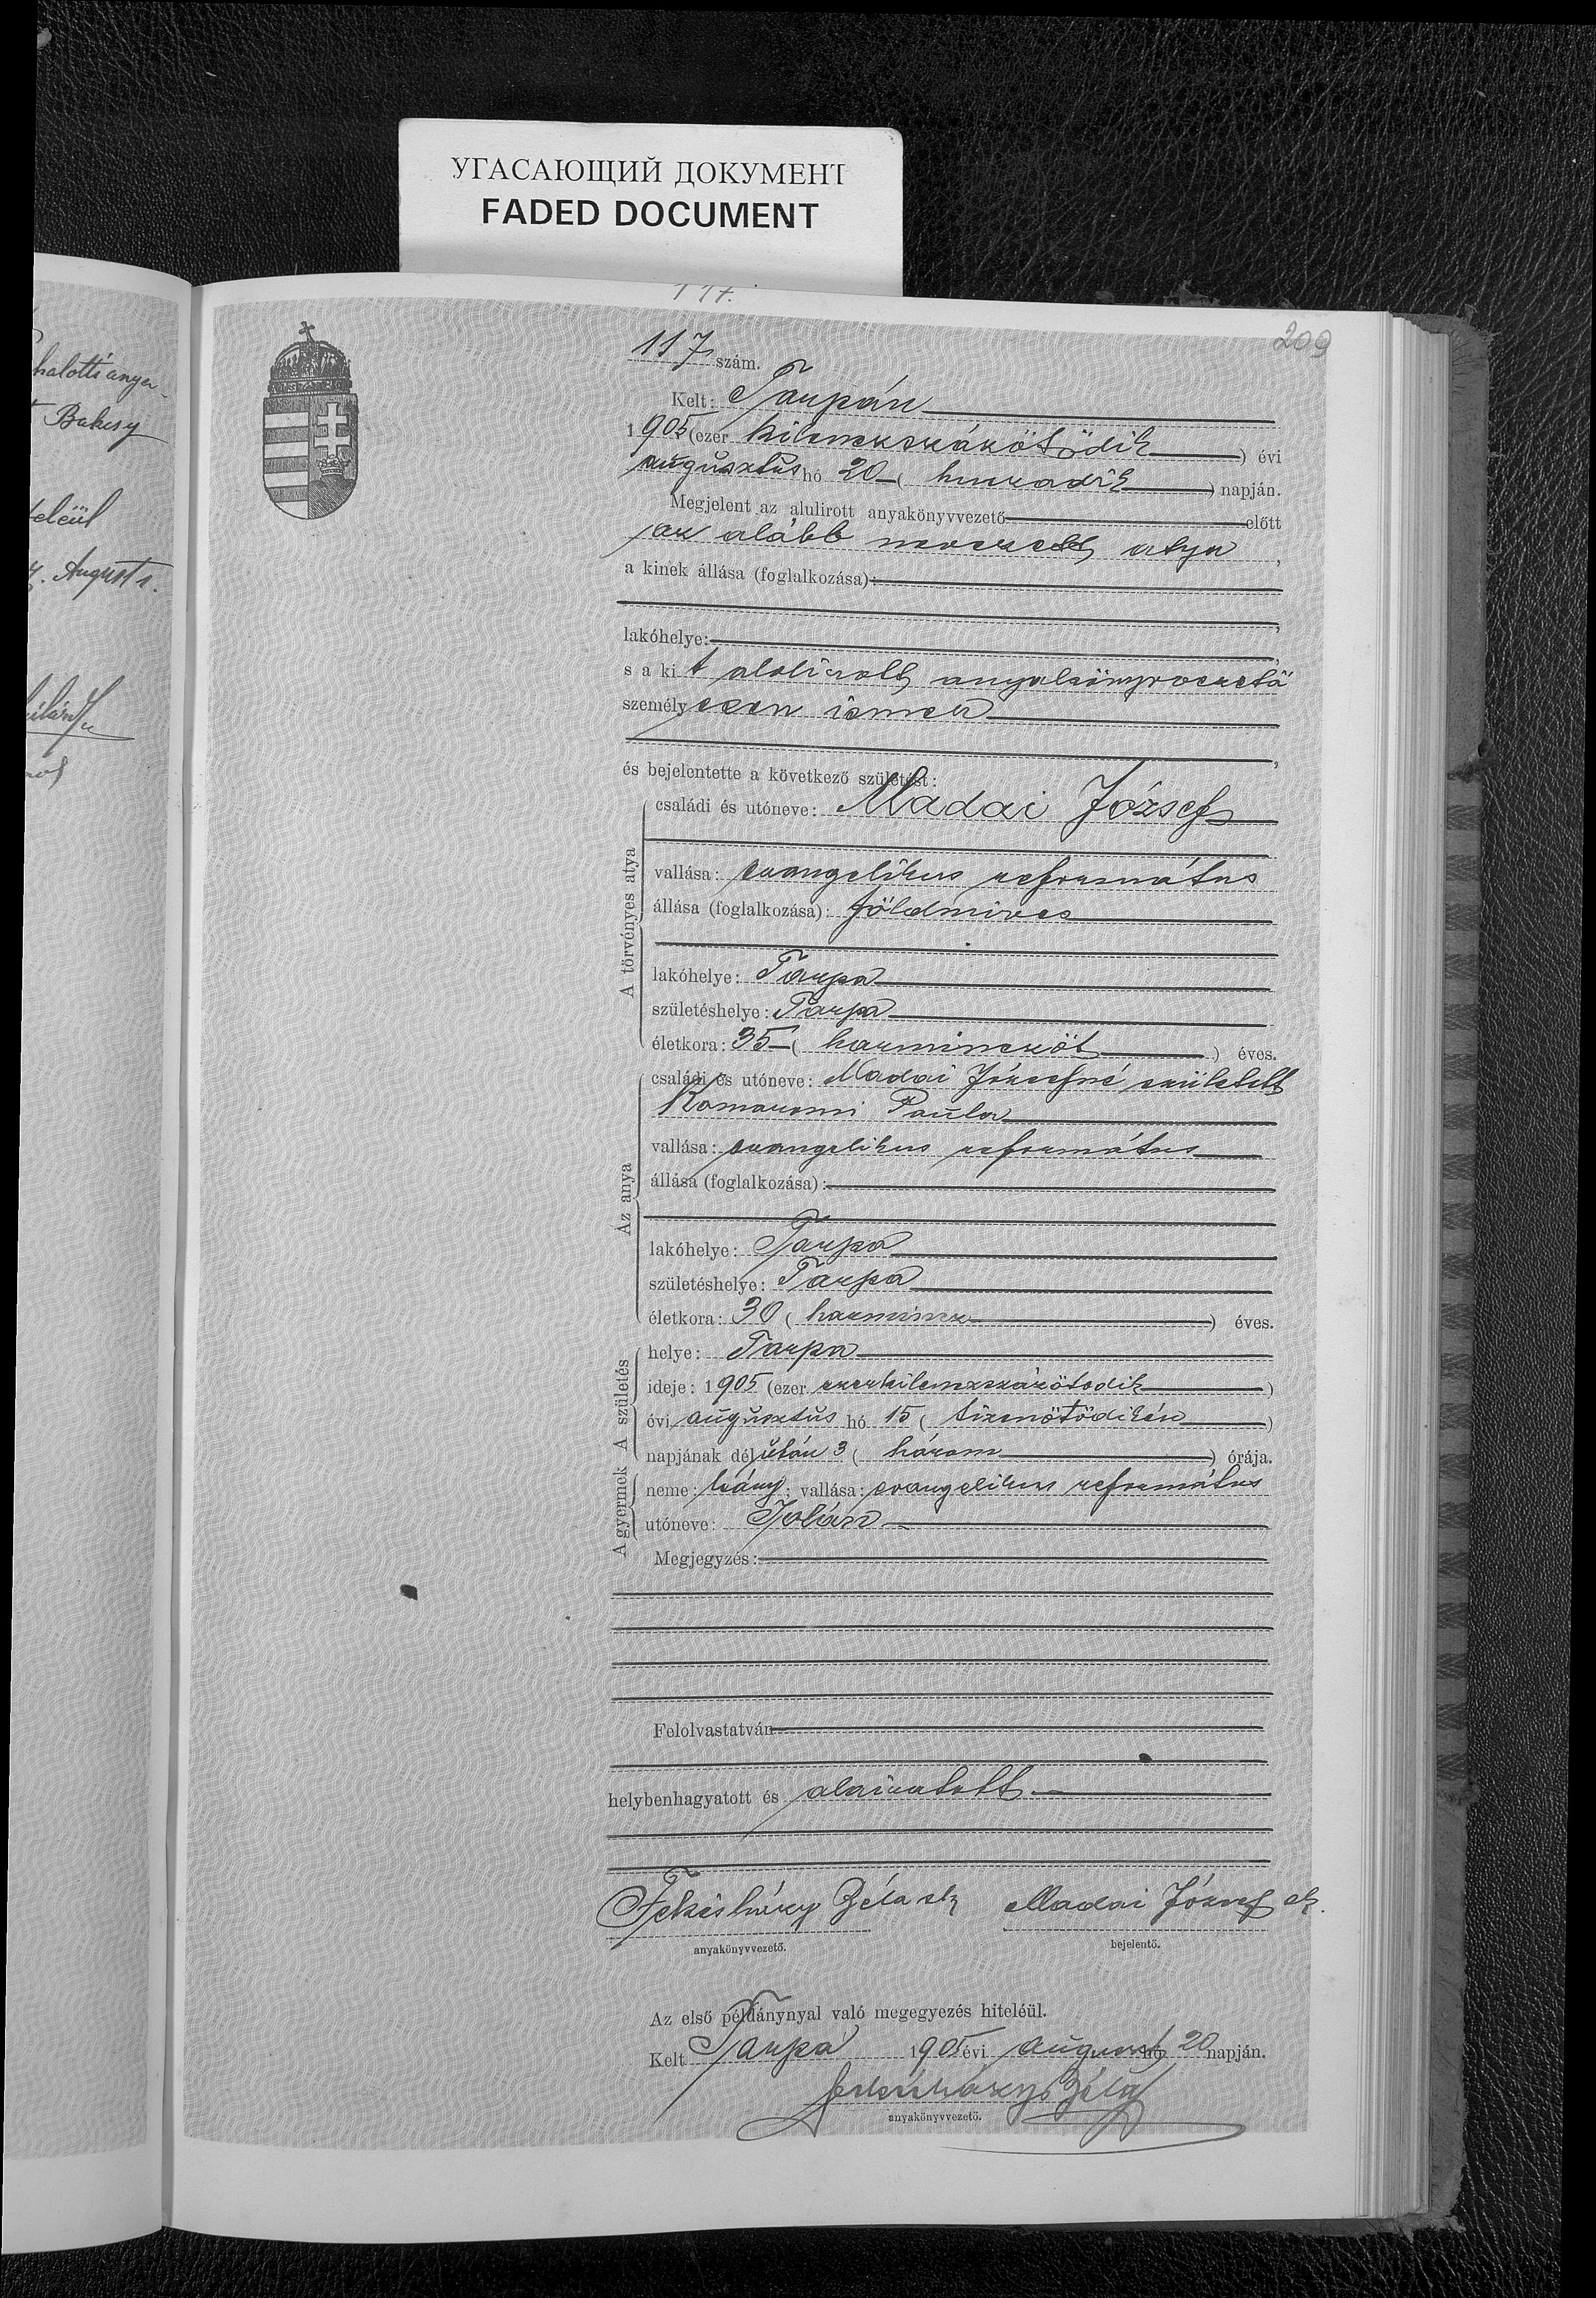 УГАСАЮЩИЙ ДОКУМЕНТ
FADED DOCUMENT
halotti anya
Bakcsy
teleül
August 1.
117.
209
117 szám.
Kelt: Tarpán
1905 (ezer kilenczszázötödik) évi
augusztus hó 20 (huszadik) napján.
Megjelent az alulirott anyakönyvvezető előtt
az alább nevezett atya,
a kinek állása (foglalkozása):
lakóhelye:
s a kit alolirott anyakönyvvezető
személyesen ismer
és bejelentette a következő születést:
A törvényes atya
családi és utóneve: Madai József
vallása: evangelikus református
állása (foglalkozása): földmives
lakóhelye: Tarpa
születéshelye: Tarpa
életkora: 35 (harminczöt) éves.
Az anya
családi és utóneve: Madai Józsefné született
Komaromi Paula
vallása: evangelikus református
állása (foglalkozása):
lakóhelye: Tarpa
születéshelye: Tarpa
életkora: 30 (harmincz) éves.
A születés
helye: Tarpa
ideje: 1905 (ezer ezerkilenczszázötödik)
évi augusztus hó 15 (tizenötödikén)
napjának délután 3 (három) órája.
A gyermek
neme: leány; vallása: evangelikus református
utóneve: Jolán
Megjegyzés:
Felolvastatván
helybenhagyatott és alairatott
Fekésházy Béla sk Madai József sk.
anyakönyvvezető. bejelentő.
Az első példánynyal való megegyezés hiteléül.
Kelt Tarpa 1905 évi august hó 20 napján.
Fekésházy Béla
anyakönyvvezető.